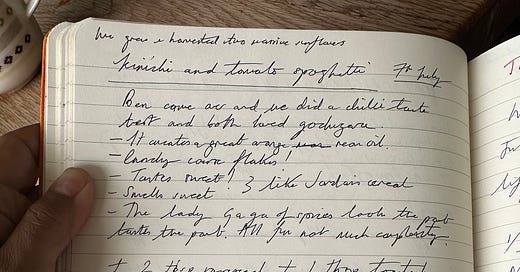 We grew & harvested two massive sunflowers
and tomato spaghetti 7th July
Ben came over and we did a chilli taste
test and both loved
- It creates a great orange neon oil.
- Candy corn flakes!
- Tastes sweet! } like Jordans cereal
- Smells sweet
- The lady gaga of spices look the part
tastes the part. All fun not much complexity.